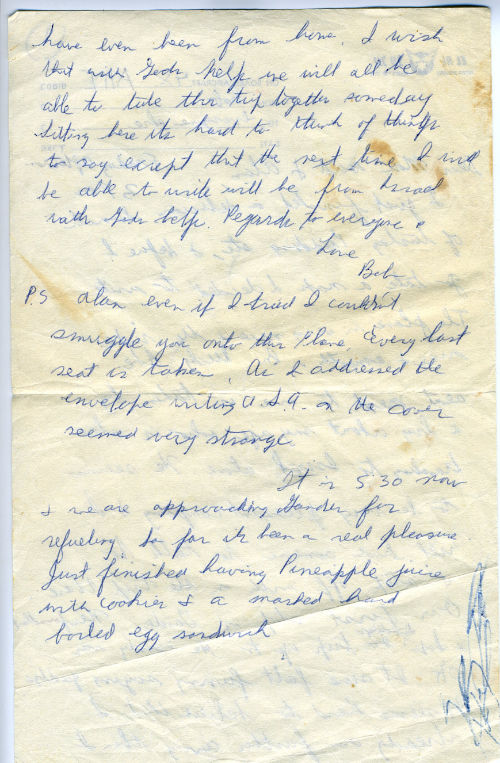 have even been from home. I wish
that with Gods help we will all be
able to take this trip together someday
Sitting here its hard to think of things
to say except that the next time I will
be able to write will be from Israel
with Gods help. Regards to everyone
Love
Bob
P.S Alan even if I tried I couldn't
smuggle you onto this Plane Every last
seat is taken. As I addressed the
envelope writing U.S.A. on the cover
seemed very strange
It is 5:30 now
& we are approaching Gander for
refueling So far its been a real pleasure
Just finished having Pineapple juice
with cookies & a mashed hard
boiled egg sandwich